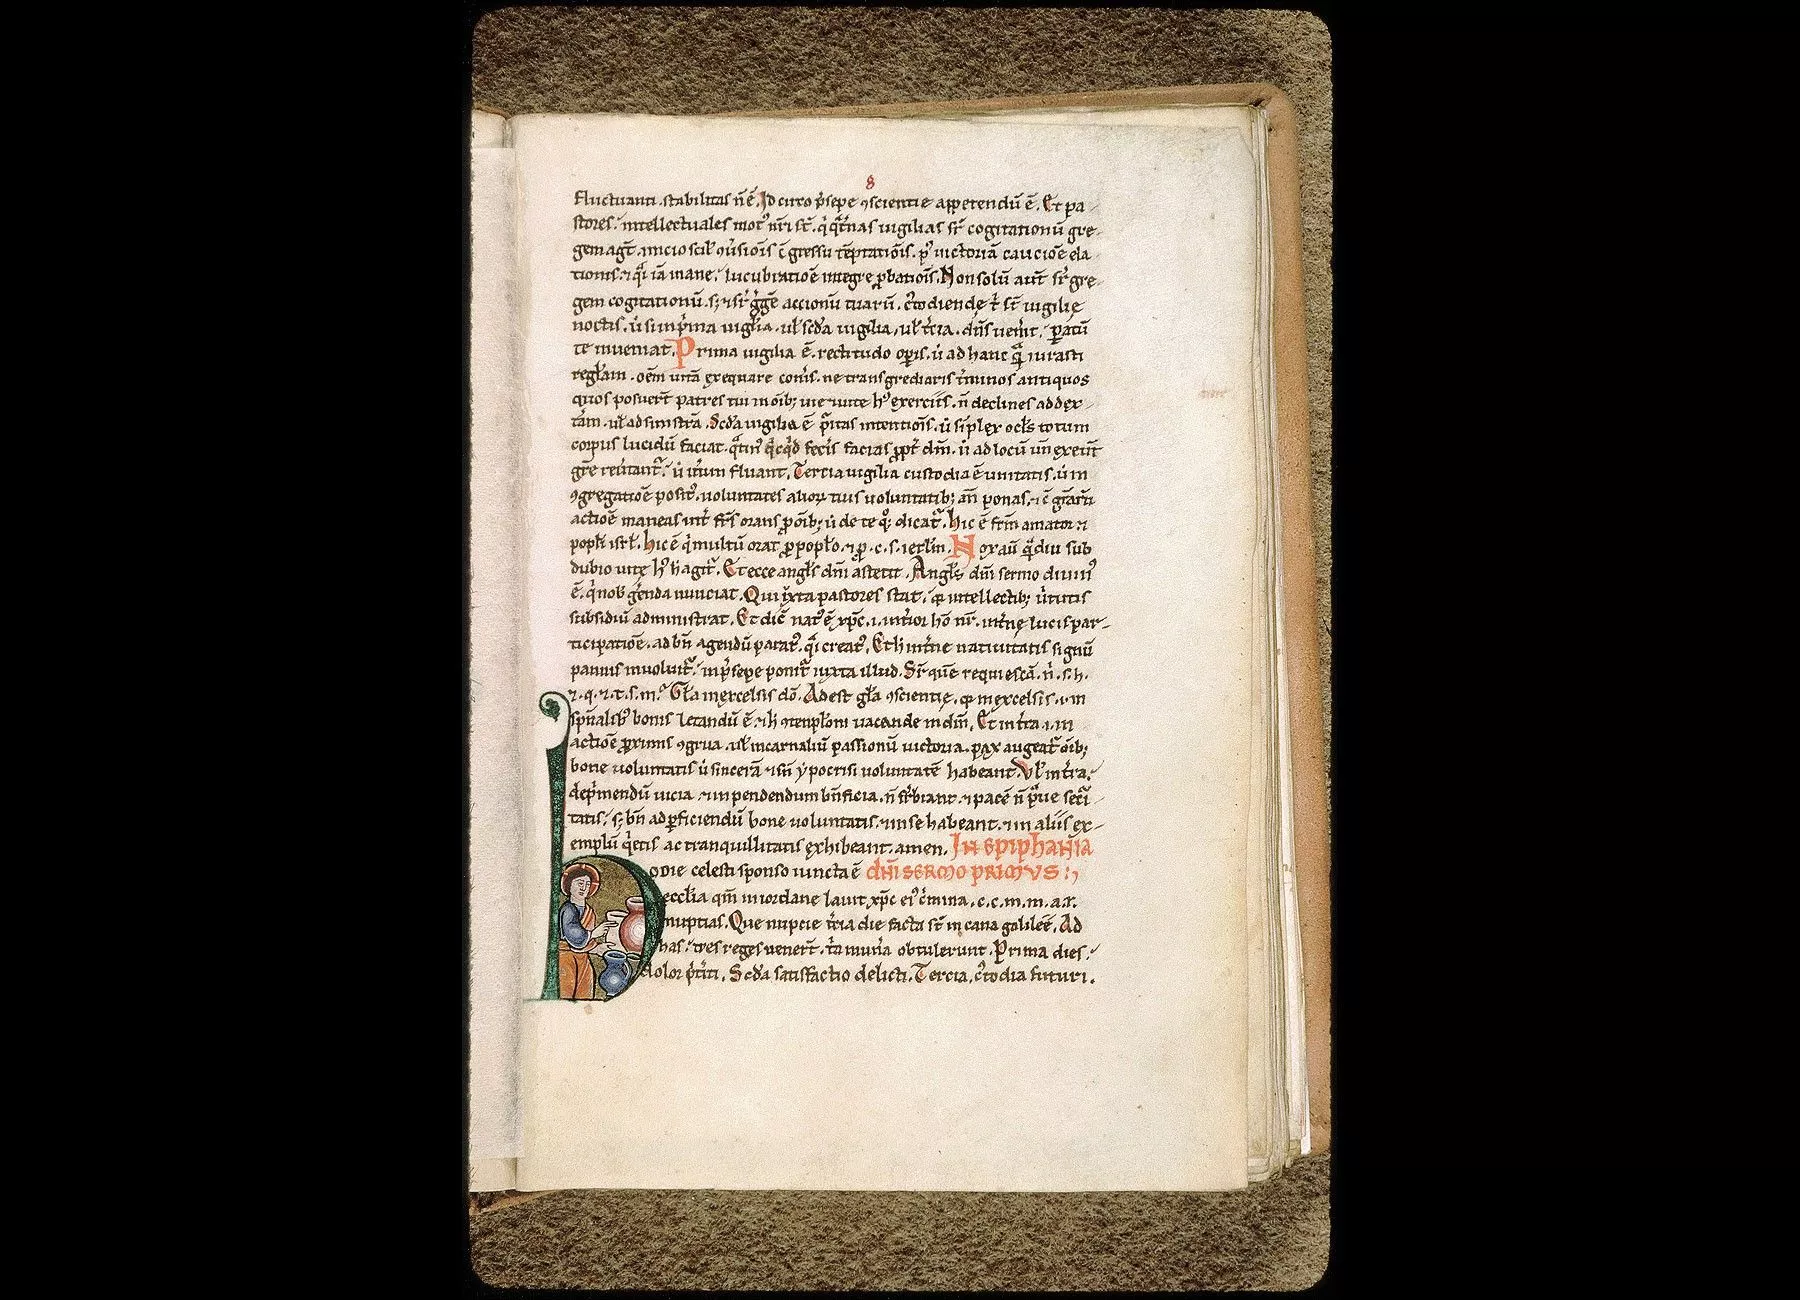 8
fluctuanti. stabilitas n̄ ē. Id circo p̄sepe ꝯscientie appetendū ē. Et pa-
stores. intellectuales mot᷒ nr̄i st̄. q̇ q̄t̄nas uigilias sr̄ cogitationū gre-
gem agt̄. inicio scil̄ ꝯūsiōis ī gressu tēptatiōis. p᷒ uictoriā caucioē ela-
tionis. ⁊ q̄i iā mane. lucubratioē integre ꝓbatiōis. Non solū aut̄ sr̄ gre-
gem cogitationū. sꝫ ⁊ sr̄ g̓gē accionū tuarū. c᷒todiende t̓ st̄ uigilię
noctis. ū si in p̓ma uigl̓ia. ul̄ scd̄a uigilia. ul̄ t̄cia. dn̄s uen̓it. ꝑatū
te inueniat. Prima uigilia ē. rectitudo oꝑis. ū ad hanc q̄ iurasti
regl̄am. oēm uitā exequare
quos posuer̄t patres tui in oīb; uie uite h᷒ exerciis. n̄ declines ad dex-
t̄am. ul̄ ad sinistrā. Scd̄a uigilia ē p̓itas intentiōis. ū sīplex ocl̄s totum
corpus lucidū faciat. facias ꝓpt̓ dm̄. ū ad locū un̄ exeūt
gr̄e reūtant᷑. ū it̓um fluant. Tercia uigilia custodia ē unitatis. ū in
ꝯgregatioē posit᷒. uoluntates alioꝝ tuis uoluntatib; an̄ ponas. ⁊ ī gr̄arū
actioē maneas int̓ fr̄s orans ꝓ oīb; ū de te q; dicat᷑. hic ē fr̄m amator ⁊
popl̄i isrl̄. hic ē q̇ multū orat ꝓ popl̄o. ⁊ ꝓ. c. s. ierl̄m. Nox aū q̄diu sub
dubio uitę h᷒ hagit᷑. Et ecce angl̄s dn̄i astetit. Angl̄s dn̄i sermo diuin᷒
ē. q̇ nob̄ g̓enda nunciat. Qui iuxta pastores stat. q̄ intellectib; ūtutis
subsidiū administrat. Et dic̄ nat᷒ ē xp̄c. .i. int̓ior hō nr̄. int̓nę lucis par-
ticipatioē. ad bn̄ agendū parat᷒. q̄i creat᷒. Et h int̓ne natiuitatis signū
pannis inuoluit᷑. in p̄sepe ponit᷑ iuxta illud. Sr̄ quē requiescā. n̄. s. h.
⁊. q. ⁊. t. s. m.᷒ Gl̄a in excelsis dō. Adest gl̄a ꝯscientię. q̄ in excelsis .i. in
spūalib᷒ bonis letandū ē. ⁊ h ꝯtenpl̄oni uacande in dn̄i. Et in t̄ra .i. in
actioē ꝓximis ꝯgrua. ul̄ in carnaliū passionū uictoria. pax augeat᷑ oīb;
bone uoluntatis ū sincerā ⁊ sn̄ ypocrisi uoluntatē habeant. Vl̄ in t̄ra.
dep̓mendū uicia. ⁊ inpendendum bn̄ficia. n̄ s̄rbiant. ⁊ pacē n̄ p̄ue sec̄i-
tatis. sꝫ bn̄ ad ꝑficiendū bone uoluntatis. ⁊ in se habeant. ⁊ in aliis ex-
emplū q̇etis ac tranquillitatis exhibeant. amen. In epiphania
Hodie celesti sponso iuncta ē dn̄i sermo primus:,
ecclīa qm̄ in iordane lauit xp̄c ei᷒ c̓mina. c. c. m. m. a. r.
nuptias. Que nupcie t̄cia die facta st̄ in cana galileę. Ad
has. tres reges uener̄t. t̄a mun̓a obtulerunt. Prima dies.
dolor p̄t̓iti. Scd̄a satisfactio delicti. Tercia. c᷒todia futuri.